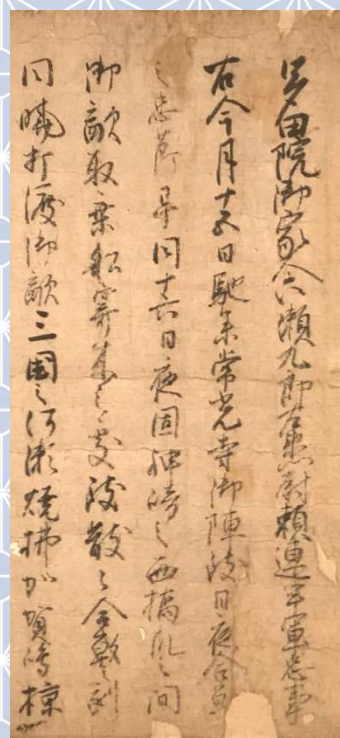 多田院御家人六瀬九郎左衛門尉頼連申軍忠事
右今月十五日馳参常光寺御陣致日夜合戦
之忠節畢同十六日夜固神崎之西橋爪之間
御敵取乗船寄来之処致散々合戦之刻
同暁打渡御敵三国之河瀬焼払加賀嶋椋